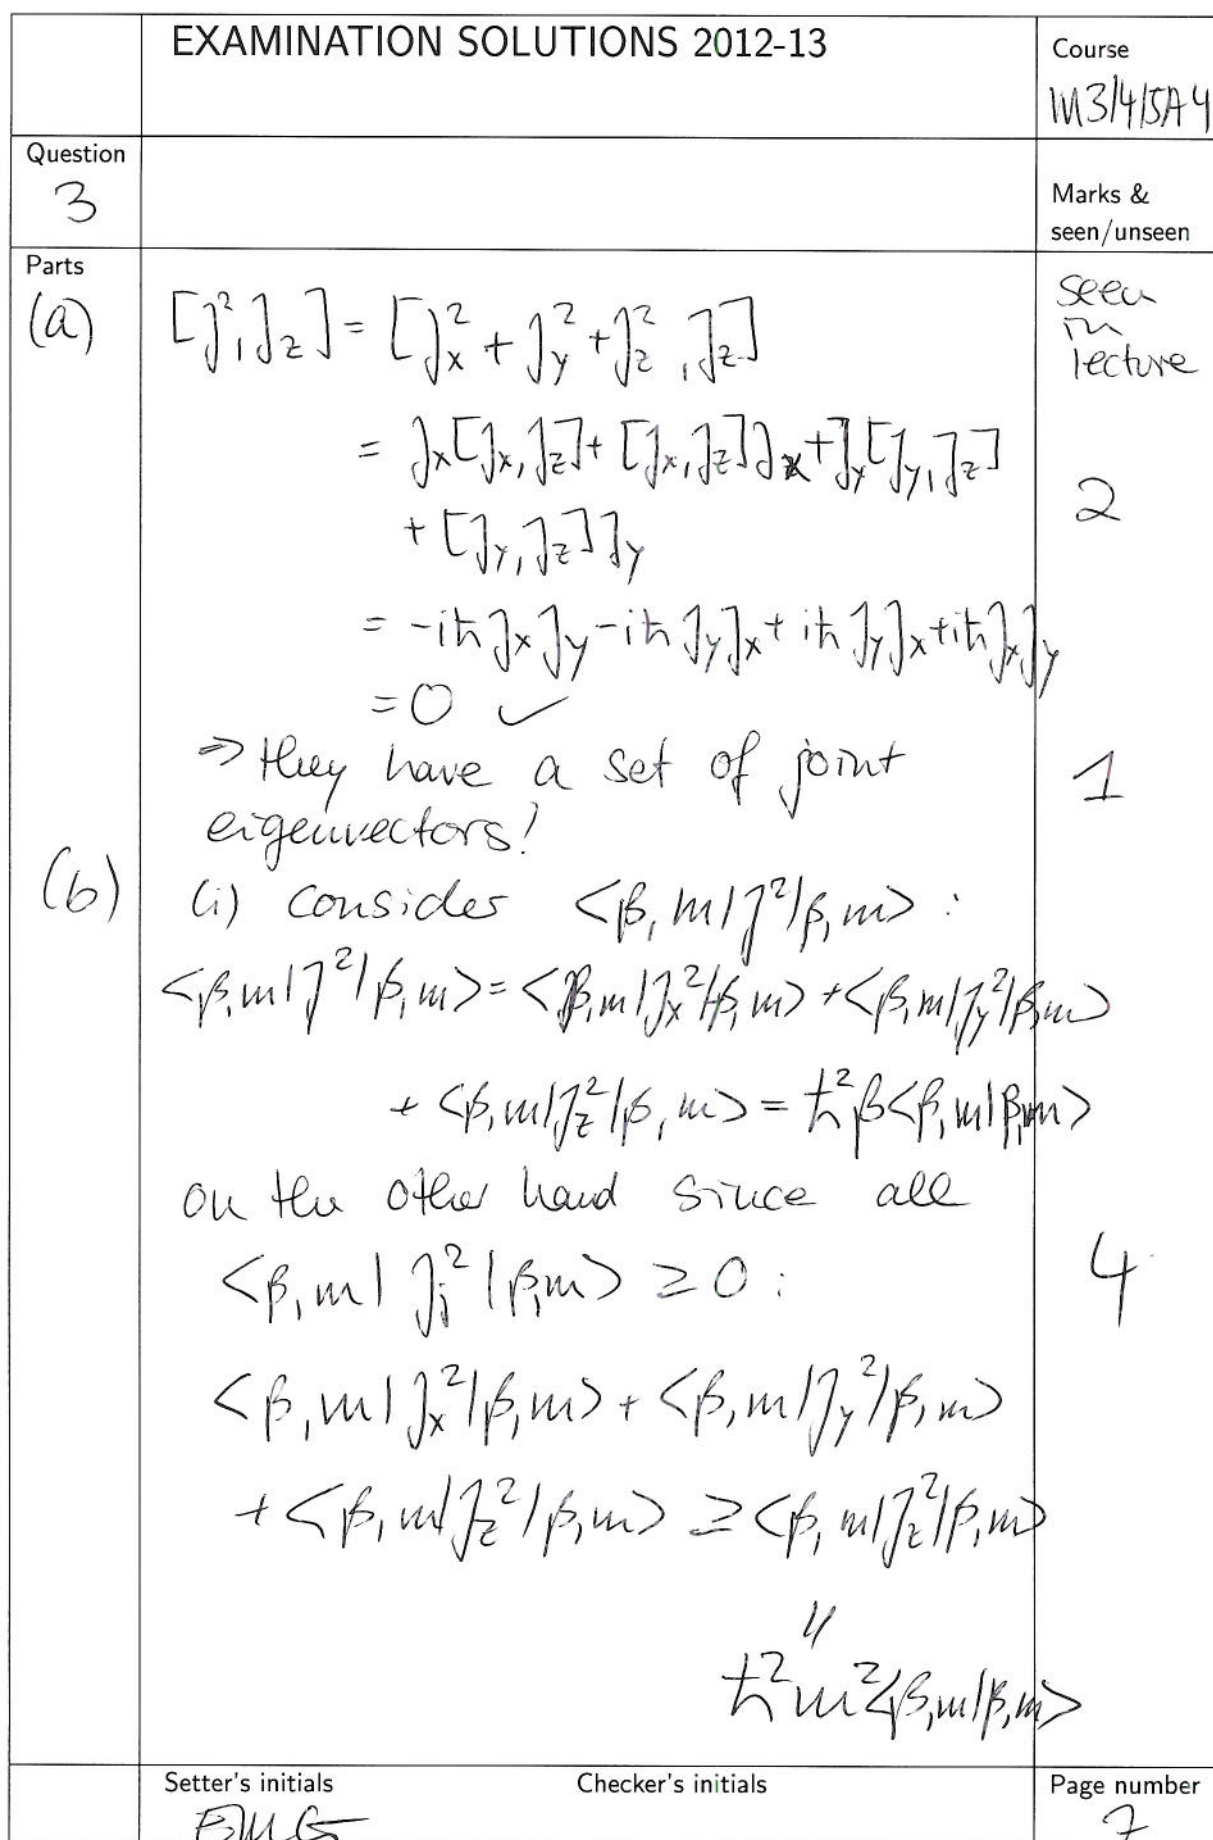 EXAMINATION SOLUTIONS 2012-13
Course
M3/4/5A4
Question
3
Marks &
seen/unseen
Parts
(a)
[J², J_z] = [J_x² + J_y² + J_z², J_z]
seen
in
lecture
= J_x[J_x, J_z] + [J_x, J_z]J_x + J_y[J_y, J_z]
+ [J_y, J_z]J_y
2
= -iħ J_x J_y - iħ J_y J_x + iħ J_y J_x + iħ J_x J_y
= 0 ✓
⇒ they have a set of joint
eigenvectors!
1
(b)
(i) consider <β, m| J² |β, m> :
<β, m| J² |β, m> = <β, m| J_x² |β, m> + <β, m| J_y² |β, m>
+ <β, m| J_z² |β, m> = ħ² β <β, m|β, m>
on the other hand since all
<β, m| J_j² |β, m> ≥ 0 :
4
<β, m| J_x² |β, m> + <β, m| J_y² |β, m>
+ <β, m| J_z² |β, m> ≥ <β, m| J_z² |β, m>
"
ħ² m² <β, m|β, m>
Setter's initials
EMG
Checker's initials
Page number
7